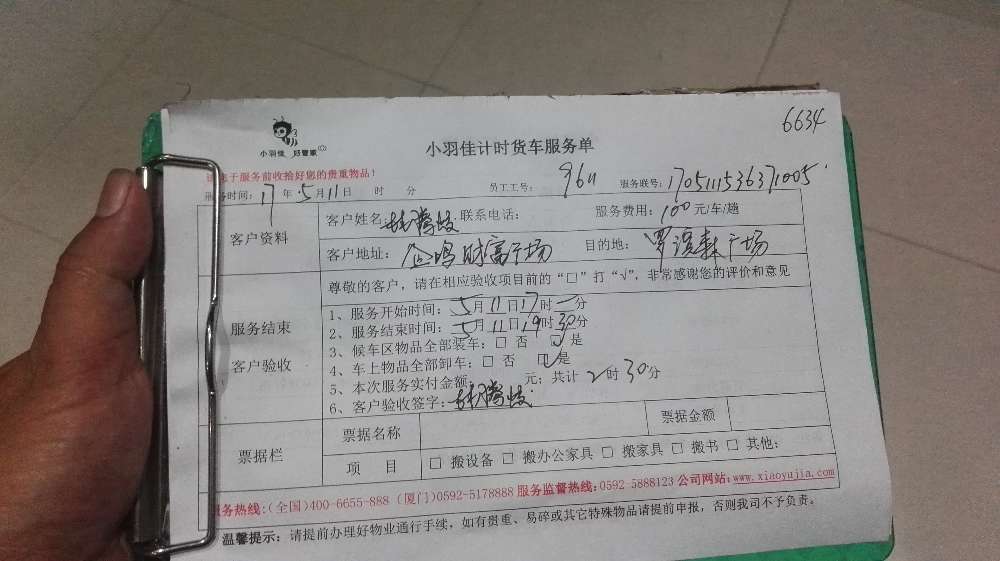 6634
小羽佳 好管家
小羽佳计时货车服务单
请您于服务前收拾好您的贵重物品!
服务时间: 17 年 5 月 11 日 时 分 员工工号: 9611 服务联号: 1705111536371005
客户资料
客户姓名: 林腾岐 联系电话: 服务费用: 100 元/车/趟
客户地址: 金鸣财富广场 目的地: 罗滨森广场
服务结束
客户验收
尊敬的客户,请在相应验收项目前的“□”打“√”,非常感谢您的评价和意见
1、服务开始时间: 5月11日17时一分
2、服务结束时间: 5月11日19时30分
3、候车区物品全部装车: □ 否 ☑ 是
4、车上物品全部卸车: □ 否 ☑ 是
5、本次服务实付金额: 元; 共计 2 时 30 分
6、客户验收签字: 林腾岐
票据栏
票据名称 票据金额
项 目 □ 搬设备 □ 搬办公家具 □ 搬家具 □ 搬书 □ 其他:
服务热线:(全国)400-6655-888 (厦门)0592-5178888 服务监督热线:0592-5888123 公司网站:www.xiaoyujia.com
温馨提示: 请提前办理好物业通行手续,如有贵重、易碎或其它特殊物品请提前申报,否则我司不予负责。